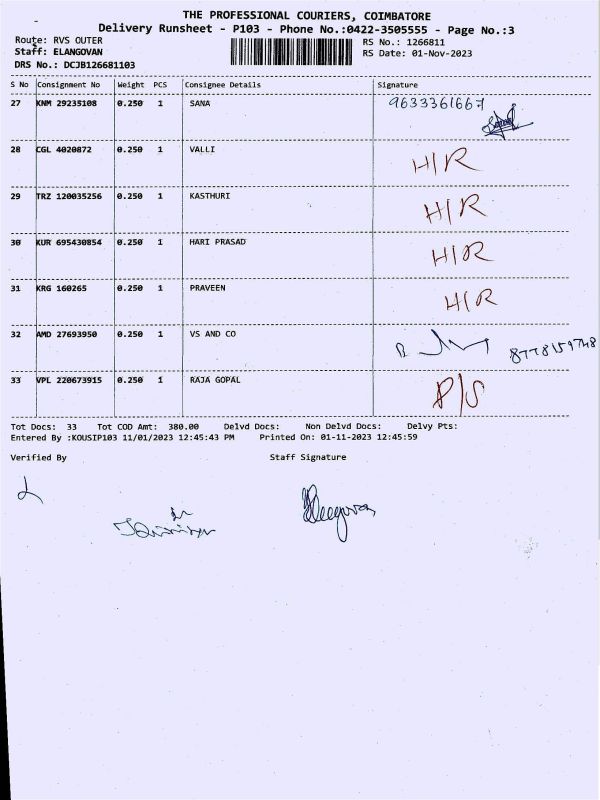 THE PROFESSIONAL COURIERS, COIMBATORE
Delivery Runsheet - P103 - Phone No.:0422-3505555 - Page No.:3
Route: RVS OUTER
Staff: ELANGOVAN
DRS No.: DCJB126681103
RS No.: 1266811
RS Date: 01-Nov-2023
S No Consignment No Weight PCS Consignee Details Signature
27 KNM 29235108 0.250 1 SANA 9633361667
28 CGL 4020872 0.250 1 VALLI H/R
29 TRZ 120035256 0.250 1 KASTHURI H/R
30 KUR 695430854 0.250 1 HARI PRASAD H/R
31 KRG 160265 0.250 1 PRAVEEN H/R
32 AMD 27693950 0.250 1 VS AND CO 8778159748
33 VPL 220673915 0.250 1 RAJA GOPAL P/S
Tot Docs: 33 Tot COD Amt: 380.00 Delvd Docs: Non Delvd Docs: Delvy Pts:
Entered By :KOUSIP103 11/01/2023 12:45:43 PM Printed On: 01-11-2023 12:45:59
Verified By Staff Signature